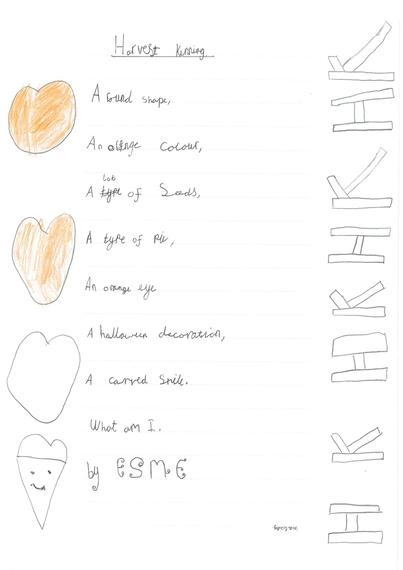 Harvest Kenning
A round shape,
An orange colour,
A lot of Seeds,
A type of Pie,
An orange eye
A halloween decoration,
A carved Smile.
What am I.
by ESME
H K H K H K H K